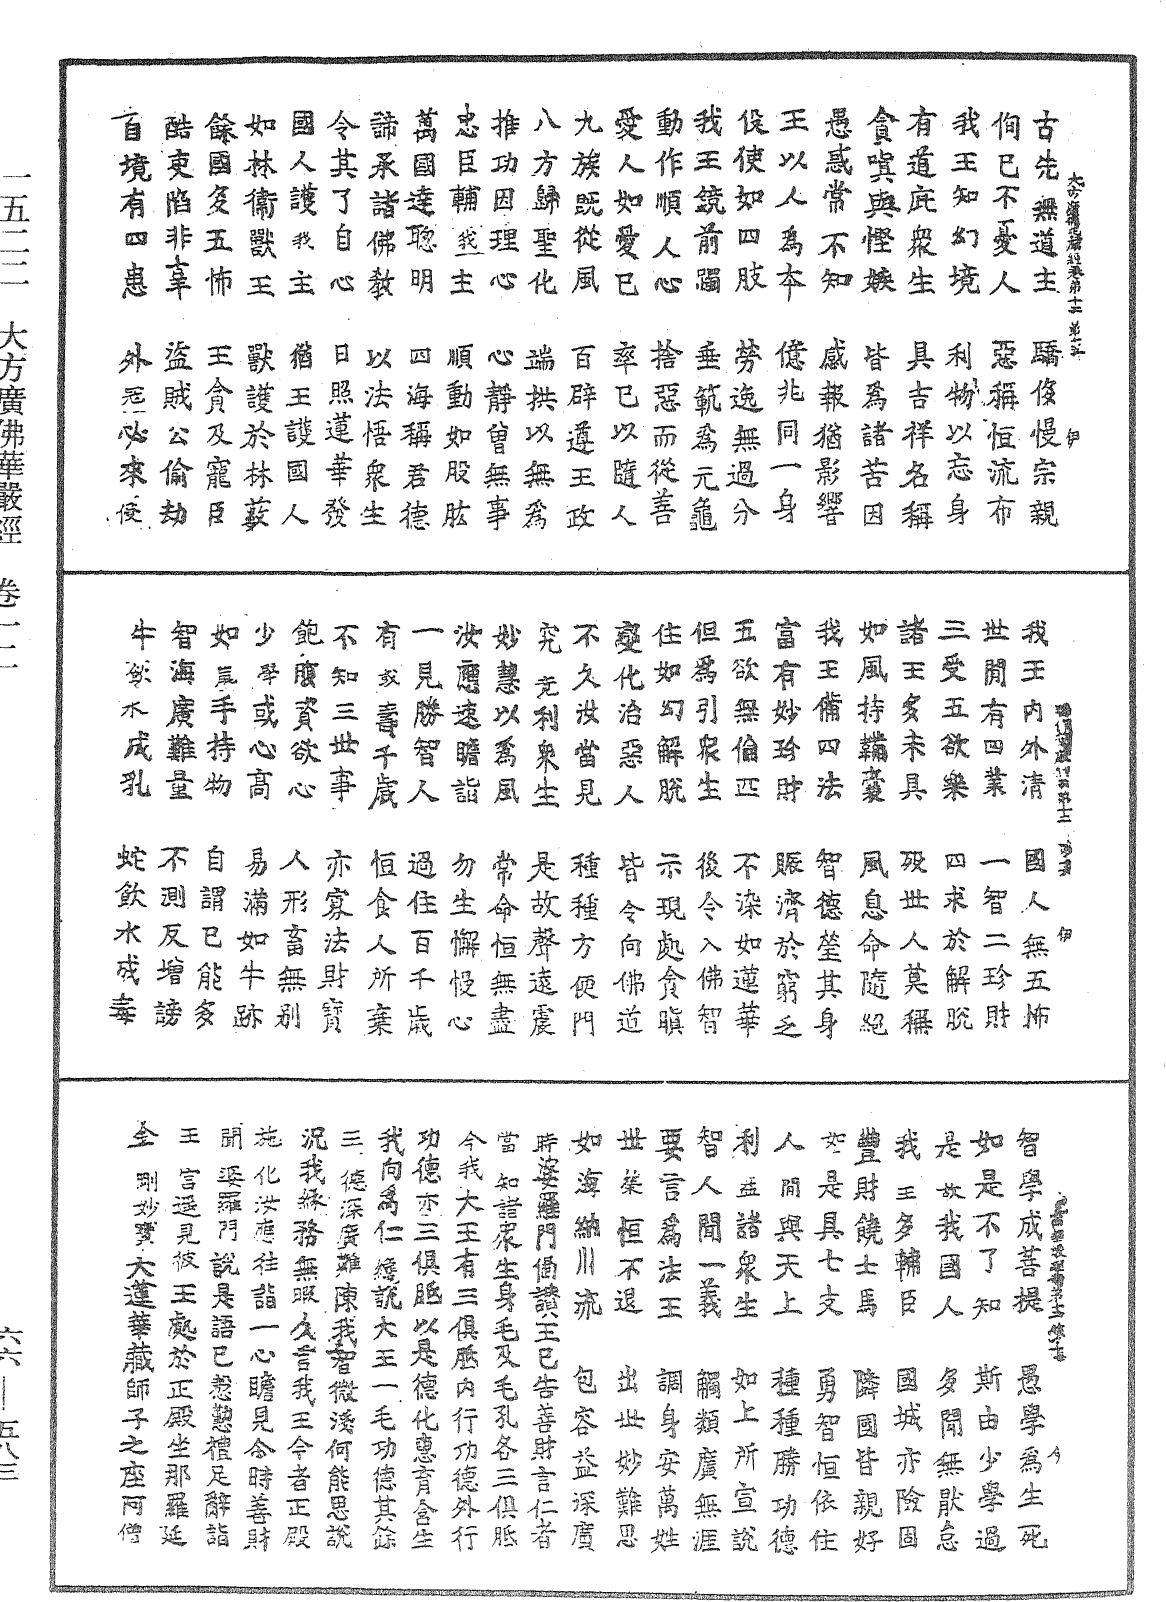 一五二二　大方廣佛華嚴經　卷一二
古先無道主　驕侈慢宗親
侚已不憂人　惡稱恒流布
我王知幻境　利物以忘身
有道庇衆生　具吉祥名稱
貪嗔與慳嫉　皆爲諸苦因
愚惑常不知　感報猶影響
王以人爲本　億兆同一身
役使如四肢　勞逸無過分
我王鏡前躅　垂範爲元龜
動作順人心　捨惡而從善
愛人如愛已　率已以隨人
九族既從風　百辟遵王政
八方歸聖化　端拱以無爲
推功因理心　心靜曾無事
忠臣輔我主　順動如股肱
萬國達聰明　四海稱君德
諦承諸佛教　以法悟衆生
令其了自心　日照蓮華發
國人護我主　猶王護國人
如林衞獸王　獸護於林藪
餘國多五怖　王貪及寵臣
酷吏陷非辜　盜賊公偷劫
百境有四患　外冦必來侵
我王內外清　國人無五怖
世閒有四業　一智二珍財
三受五欲樂　四求於解脫
諸王多未具　歿世人莫稱
如風持鞴囊　風息命隨絕
我王備四法　智德鍳其身
富有妙珍財　賑濟於窮乏
五欲無倫匹　不染如蓮華
但爲引衆生　後令入佛智
住如幻解脫　示現處貪瞋
變化治惡人　皆令向佛道
不久汝當見　種種方便門
究竟利衆生　是故聲遠震
妙慧以爲風　常命恒無盡
汝應速瞻詣　勿生懈慢心
一見勝智人　過住百千歲
有或壽千歲　恒食人所棄
不知三世事　亦寡法財寶
飽腹資欲心　人形畜無別
少學或心高　易滿如牛跡
如手持物　自謂已能多
智海廣難量　不測反增謗
牛飲水成乳　蛇飲水成毒
智學成菩提　愚學爲生死
如是不了知　斯由少學過
是故我國人　多聞無猒怠
我王多輔臣　國城亦險固
豐財饒士馬　隣國皆親好
如是具七支　勇智恒依住
人閒與天上　種種勝功德
利益諸衆生　如上所宣說
智人聞一義　觸類廣無涯
要言爲法王　調身安萬姓
世榮恒不退　出世妙難思
如海納川流　包容益深廣
時婆羅門偈讚王已告善財言仁者
當知諸衆生身毛及毛孔各三俱胝
今我大王有三俱胝內行功德外行
功德亦三俱胝以是德化惠育含生
我向爲仁纔說大王一毛功德其餘
三德深廣難陳我智微淺何能思說
況我緣務無暇久言我王今者正殿
施化汝應往詣一心瞻見念時善財
聞婆羅門說是語已慇懃禮足辭詣
王宮遥見彼王處於正殿坐那羅延
金剛妙寶大蓮華藏師子之座阿僧
六六—五八三